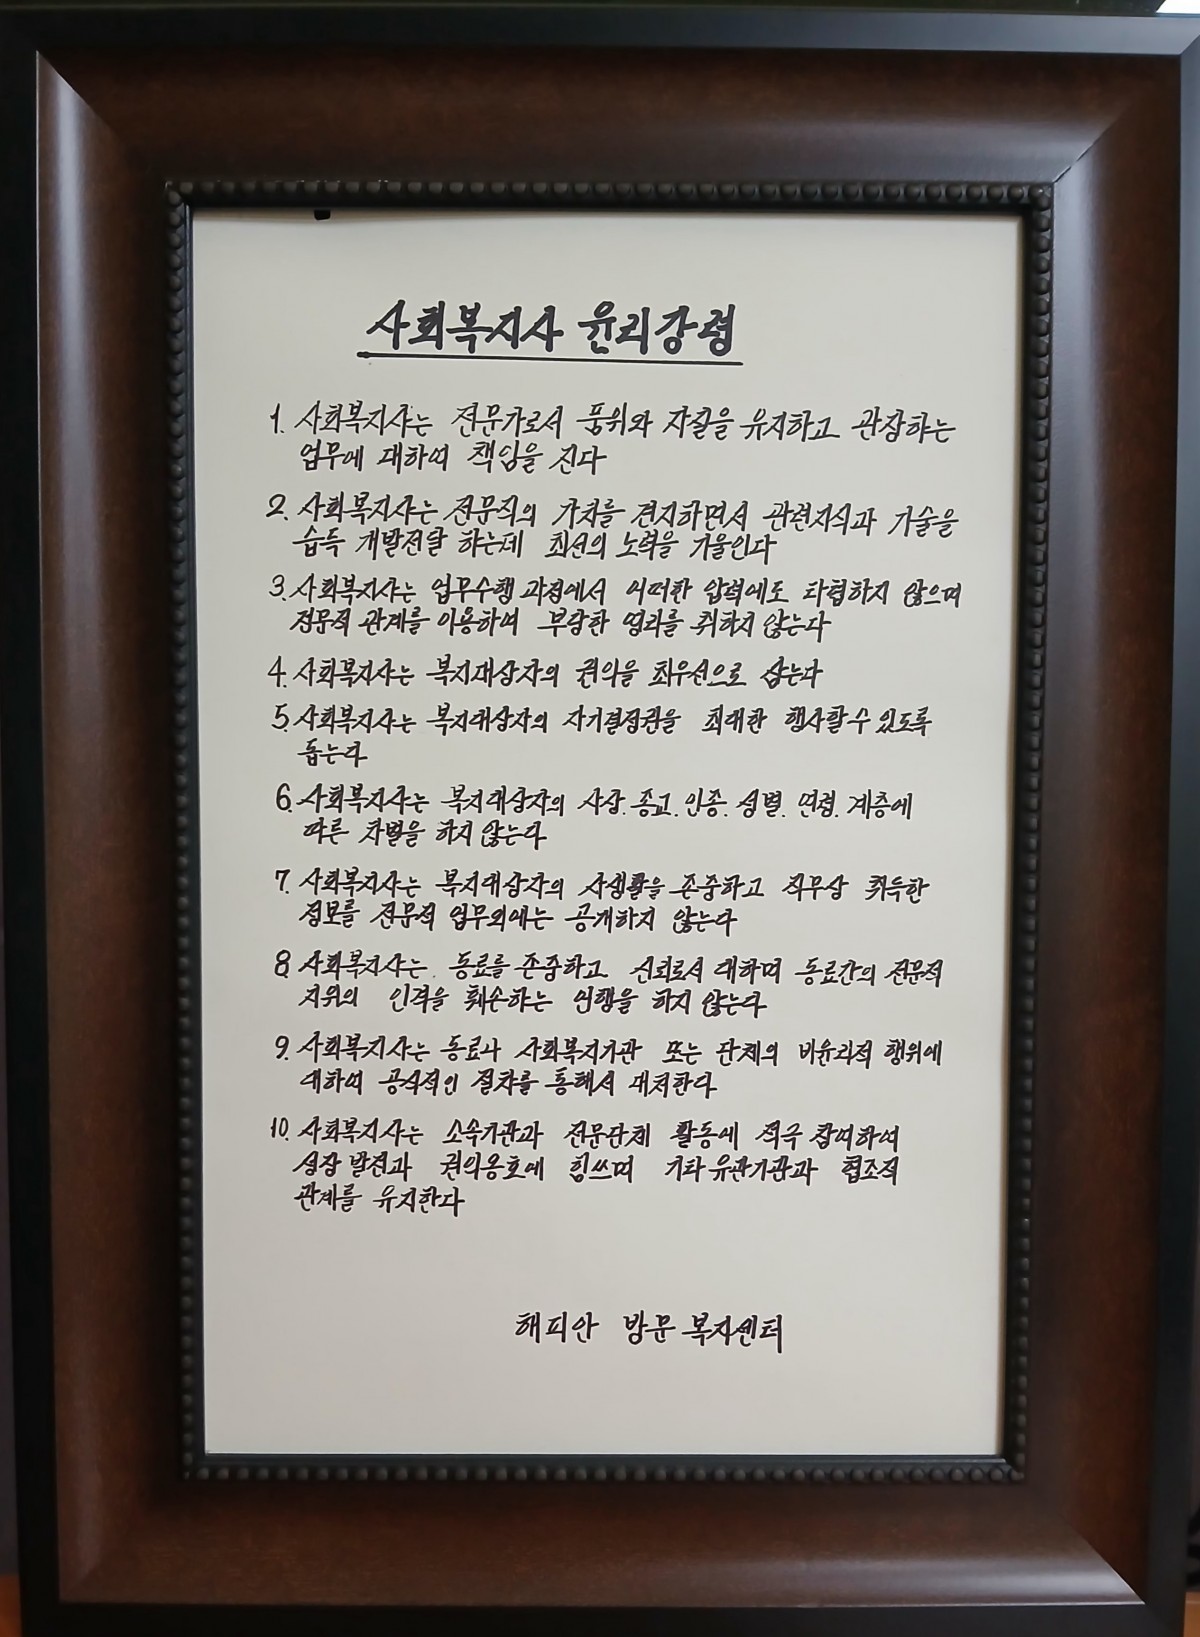 사회복지사 윤리강령
1. 사회복지사는 전문가로서 품위와 자질을 유지하고 관장하는
업무에 대하여 책임을 진다
2. 사회복지사는 전문직의 가치를 견지하면서 관련지식과 기술을
습득 개발전달 하는데 최선의 노력을 기울인다
3. 사회복지사는 업무수행 과정에서 어떠한 압력에도 타협하지 않으며
전문적 관계를 이용하여 부당한 영리를 취하지 않는다
4. 사회복지사는 복지대상자의 권익을 최우선으로 삼는다
5. 사회복지사는 복지대상자의 자기결정권을 최대한 행사할수 있도록
돕는다
6. 사회복지사는 복지대상자의 사상. 종교. 인종. 성별. 연령. 계층에
따른 차별을 하지 않는다
7. 사회복지사는 복지대상자의 사생활을 존중하고 직무상 취득한
정보를 전문적 업무외에는 공개하지 않는다
8. 사회복지사는. 동료를 존중하고 신뢰로서 대하며 동료간의 전문적
지위의 인격을 훼손하는 언행을 하지 않는다
9. 사회복지사는 동료나 사회복지기관 또는 단체의 비윤리적 행위에
대하여 공식적인 절차를 통해서 대처한다
10. 사회복지사는 소속기관과 전문단체 활동에 적극 참여하여
성장 발전과 권익옹호에 힘쓰며 기타 유관기관과 협조적
관계를 유지한다
해피안 방문 복지센터